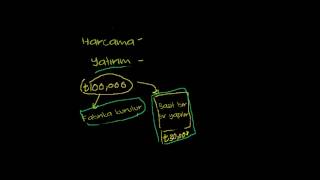 Harcama -
Yatırım -
₺100,000
Fabrika kurulur
Basit bir
yapılır